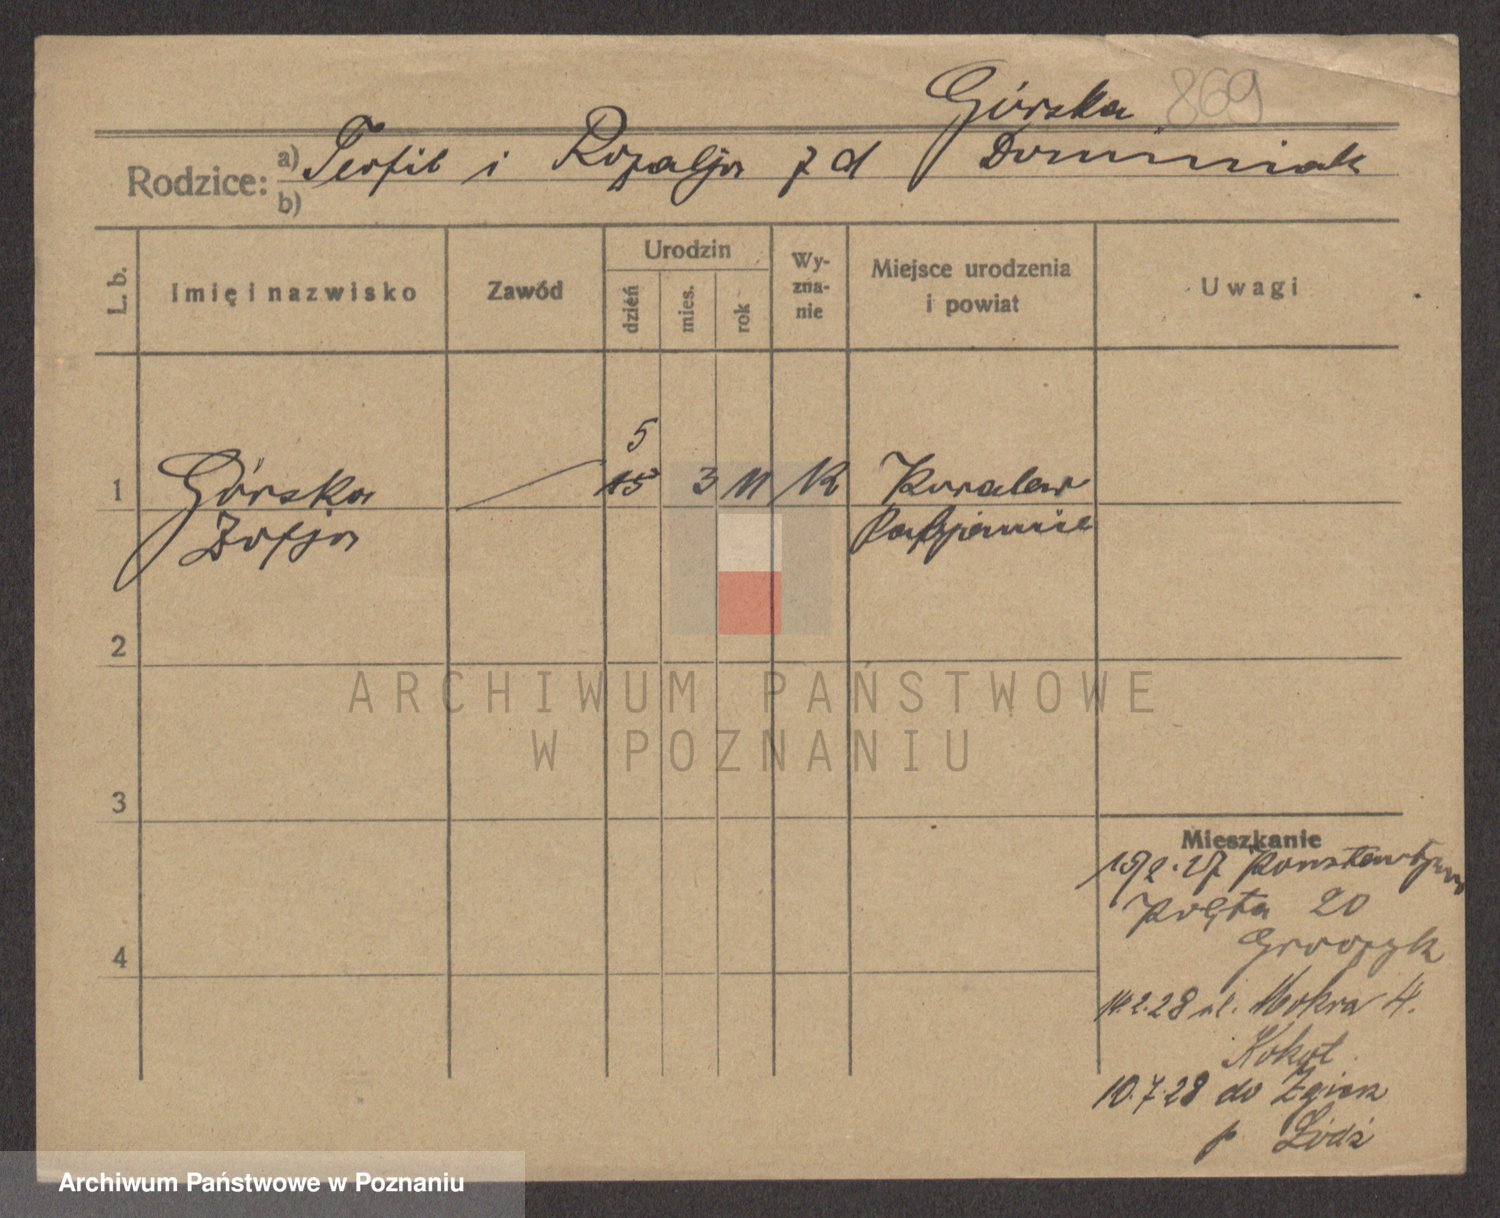 Górska 869
Rodzice: a) Teofil i Rozalja z d Dominiak
b)
L. b.
Imię i nazwisko
Zawód
Urodzin
dzień
mies.
rok
Wy-
zna-
nie
Miejsce urodzenia
i powiat
Uwagi
5
1 Górska 15 3 11 K
Zofja
2
3
4
ARCHIWUM PAŃSTWOWE
W POZNANIU
Mieszkanie
15/2.27
20
14.2.28 ul. Mokra 4.
Kokot
10.7.28 do Zgierz
p. Łódź
Archiwum Państwowe w Poznaniu